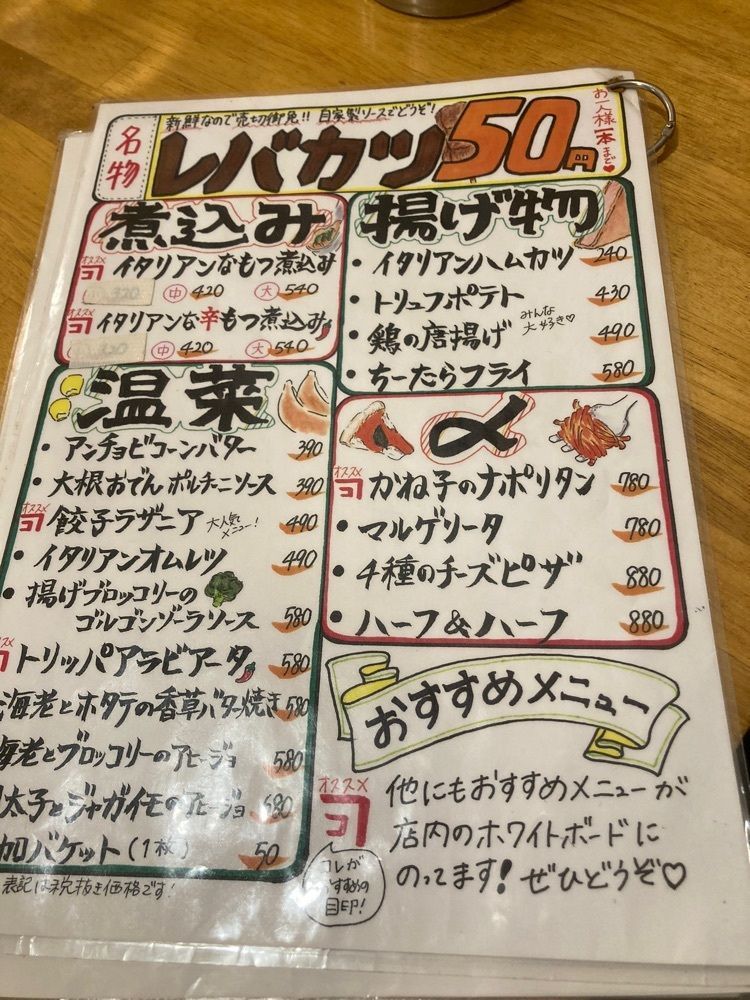 名物
新鮮なので売切御免!! 自家製ソースでどうぞ!
レバカツ 50円
お一人様一本まで♥
煮込み
オススメ
コ イタリアンなもつ煮込み
320 中 420 大 540
オススメ
コ イタリアンな辛もつ煮込み
320 中 420 大 540
揚げ物
・イタリアンハムカツ 240
・トリュフポテト 430
・鶏の唐揚げ みんな大好き♡ 490
・ちーたらフライ 580
温菜
・アンチョビコーンバター 390
・大根おでん ポルチーニソース 390
オススメ
コ 餃子ラザニア 大人気メニュー! 490
・イタリアンオムレツ 490
・揚げブロッコリーの
ゴルゴンゾーラソース 580
コ トリッパアラビアータ 580
海老とホタテの香草バター焼き 580
海老とブロッコリーのアヒージョ 580
太子とジャガイモのアヒージョ 580
加バケット(1枚) 50
表記は税抜き価格です!
〆
オススメ
コ かね子のナポリタン 780
・マルゲリータ 780
・4種のチーズピザ 880
・ハーフ&ハーフ 880
おすすめメニュー
オススメ
コ
コレが
おすすめの
目印!
他にもおすすめメニューが
店内のホワイトボードに
のってます! ぜひどうぞ♡